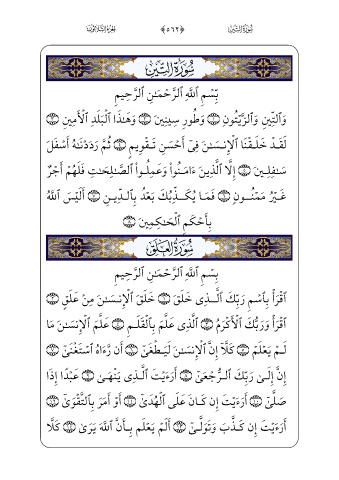 سُورَةُ التِّينِ ﴿٥٦٢﴾ الجُزْءُ الثَّلَاثُونَ
سُورَةُ التِّينِ
بِسْمِ ٱللَّهِ ٱلرَّحْمَٰنِ ٱلرَّحِيمِ
وَٱلتِّينِ وَٱلزَّيْتُونِ ١ وَطُورِ سِينِينَ ٢ وَهَٰذَا ٱلْبَلَدِ ٱلْأَمِينِ ٣
لَقَدْ خَلَقْنَا ٱلْإِنسَٰنَ فِىٓ أَحْسَنِ تَقْوِيمٍ ٤ ثُمَّ رَدَدْنَٰهُ أَسْفَلَ
سَٰفِلِينَ ٥ إِلَّا ٱلَّذِينَ ءَامَنُوا۟ وَعَمِلُوا۟ ٱلصَّٰلِحَٰتِ فَلَهُمْ أَجْرٌ
غَيْرُ مَمْنُونٍ ٦ فَمَا يُكَذِّبُكَ بَعْدُ بِٱلدِّينِ ٧ أَلَيْسَ ٱللَّهُ
بِأَحْكَمِ ٱلْحَٰكِمِينَ ٨
سُورَةُ العَلَقِ
بِسْمِ ٱللَّهِ ٱلرَّحْمَٰنِ ٱلرَّحِيمِ
ٱقْرَأْ بِٱسْمِ رَبِّكَ ٱلَّذِى خَلَقَ ١ خَلَقَ ٱلْإِنسَٰنَ مِنْ عَلَقٍ ٢
ٱقْرَأْ وَرَبُّكَ ٱلْأَكْرَمُ ٣ ٱلَّذِى عَلَّمَ بِٱلْقَلَمِ ٤ عَلَّمَ ٱلْإِنسَٰنَ مَا
لَمْ يَعْلَمْ ٥ كَلَّآ إِنَّ ٱلْإِنسَٰنَ لَيَطْغَىٰٓ ٦ أَن رَّءَاهُ ٱسْتَغْنَىٰٓ ٧
إِنَّ إِلَىٰ رَبِّكَ ٱلرُّجْعَىٰٓ ٨ أَرَءَيْتَ ٱلَّذِى يَنْهَىٰ ٩ عَبْدًا إِذَا
صَلَّىٰٓ ١٠ أَرَءَيْتَ إِن كَانَ عَلَى ٱلْهُدَىٰٓ ١١ أَوْ أَمَرَ بِٱلتَّقْوَىٰٓ ١٢
أَرَءَيْتَ إِن كَذَّبَ وَتَوَلَّىٰٓ ١٣ أَلَمْ يَعْلَم بِأَنَّ ٱللَّهَ يَرَىٰ ١٤ كَلَّا